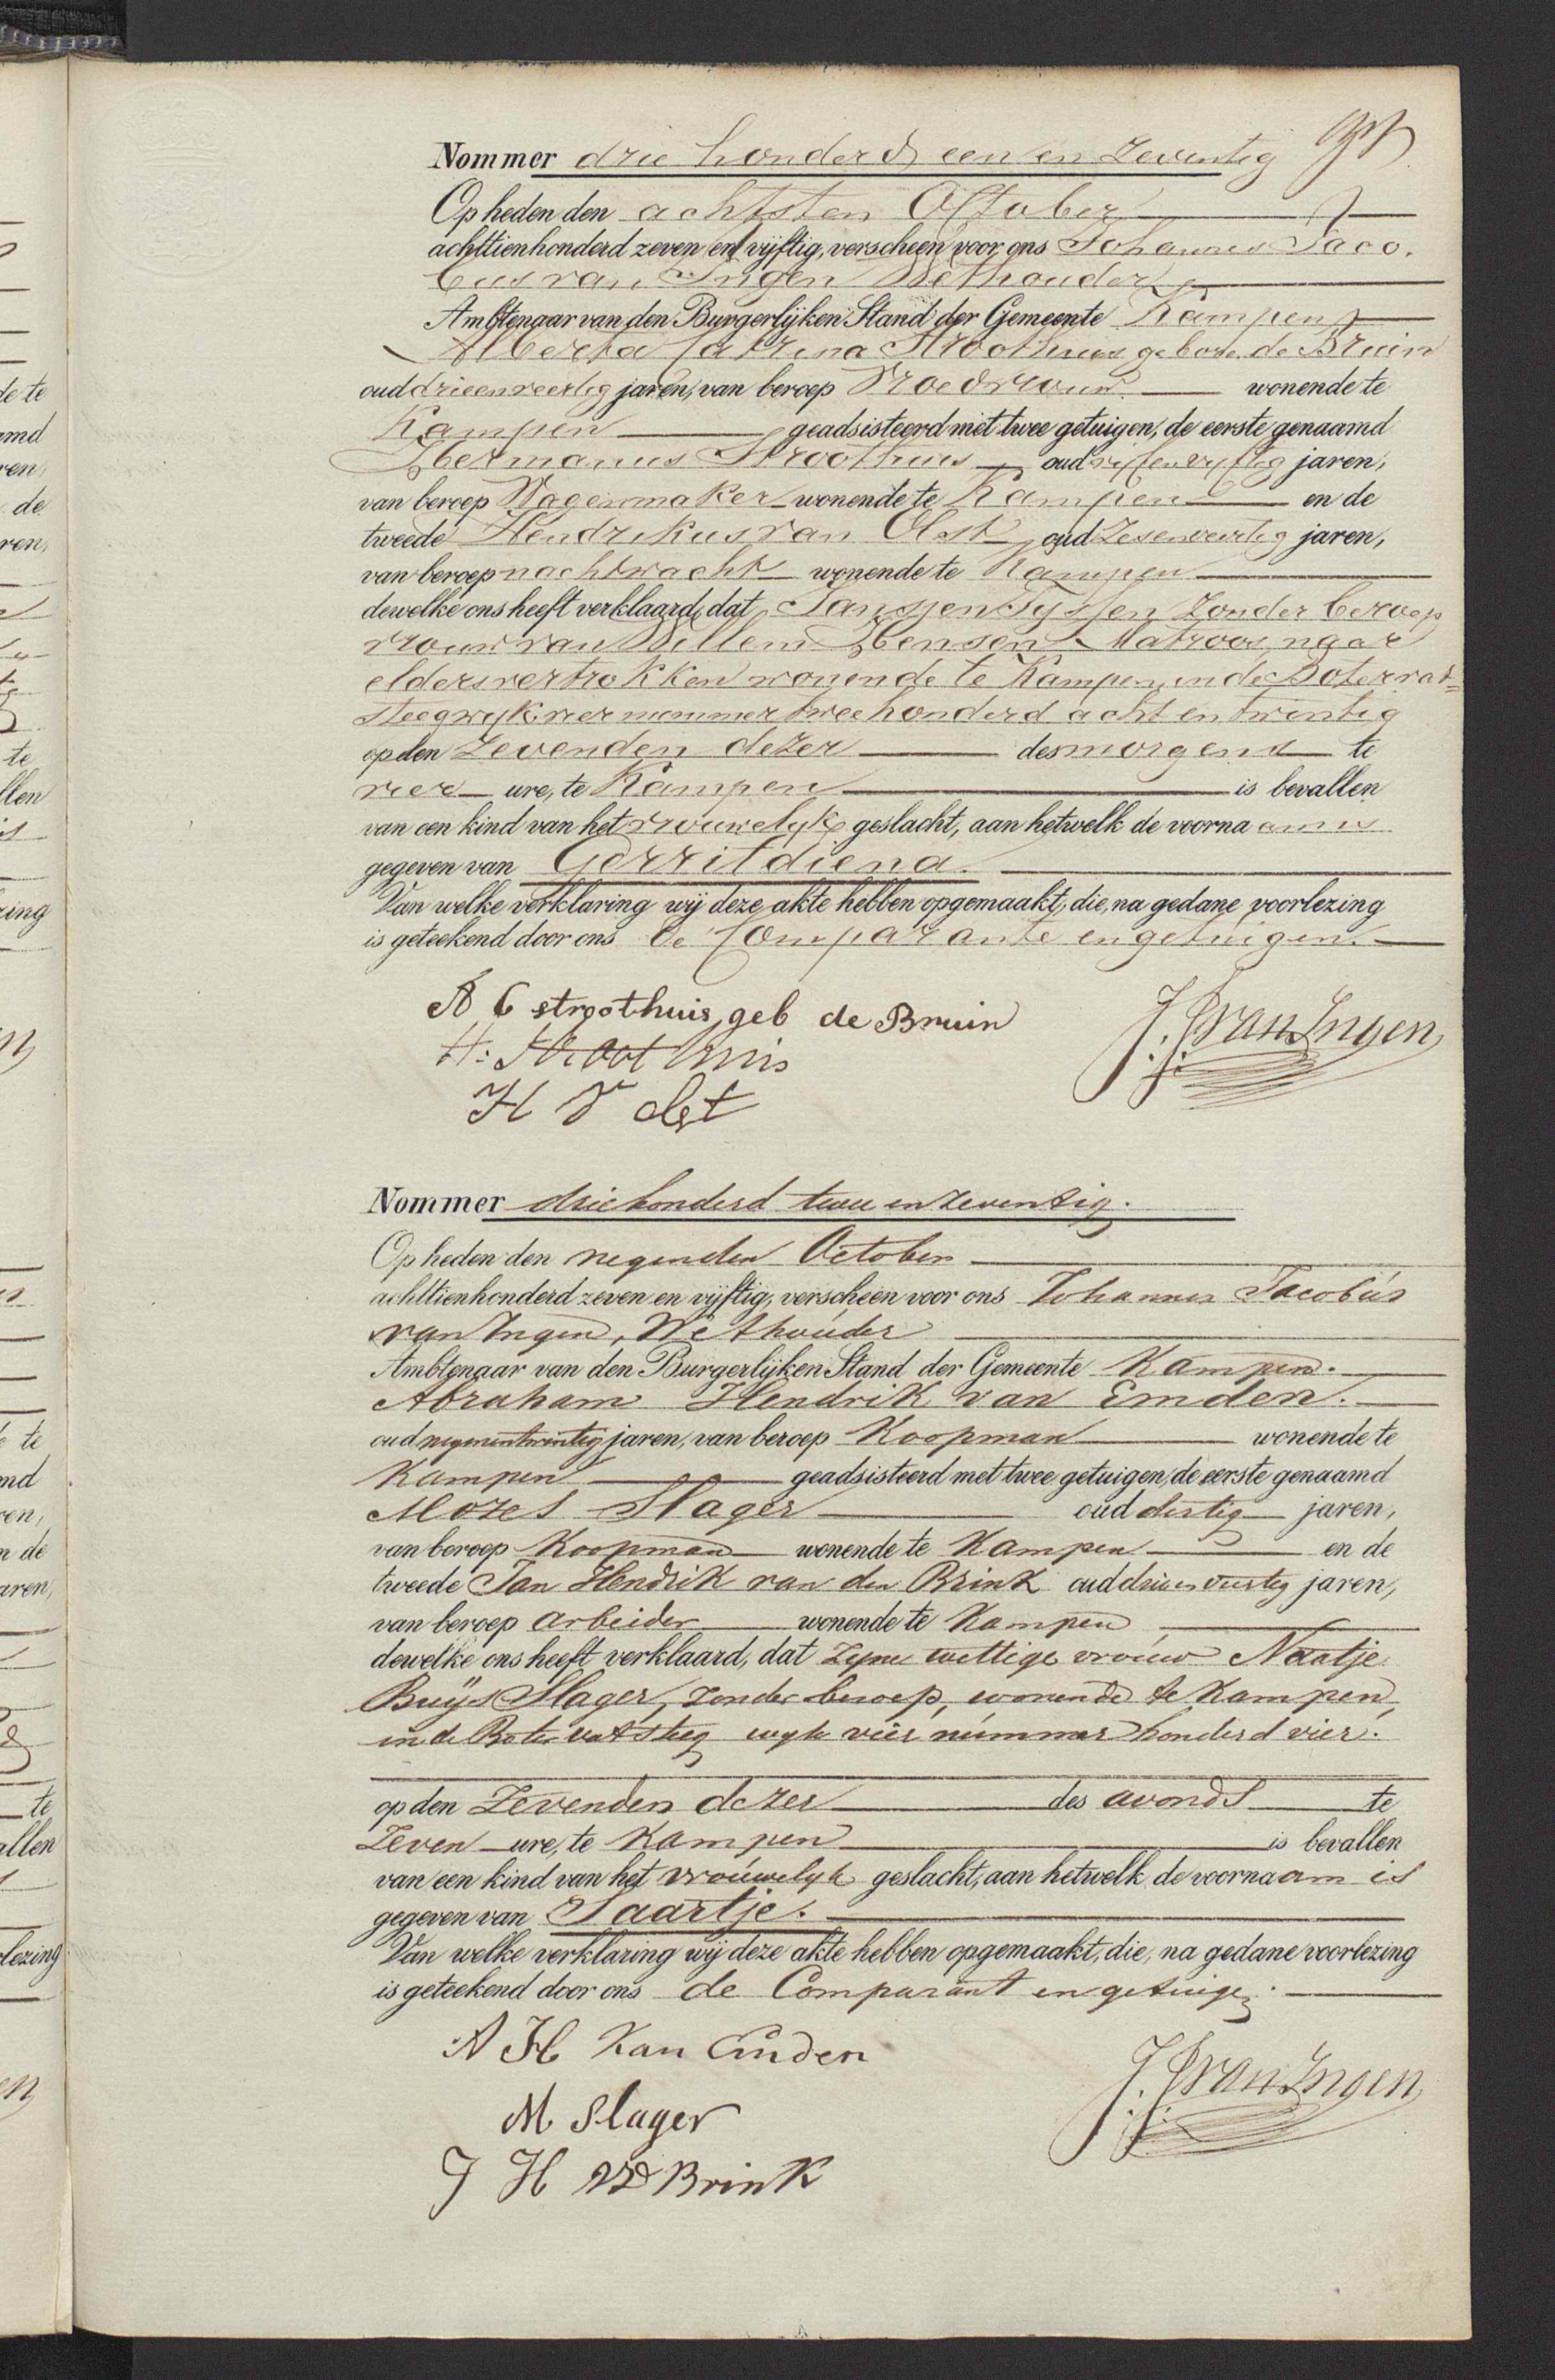 Nommer drie honderd een en Zeventig
Op heden den achtsten October
achttienhonderd zeven en vijftig, verscheen voor ons Johannes Jaco.
bus van Ingen Wethouder
Ambtenaar van den Burgerlijken Stand der Gemeente Kampen
Alberta Catrina Stroothuis gebore de Bruin
oud drieenveertig jaren, van beroep Vroedvrouw wonende te
Kampen geadsisteerd met twee getuigen, de eerste genaamd
Hermanus Stroothuis oud vyfenvyftig jaren,
van beroep Wagenmaker wonende te Kampen en de
tweede Hendrikus van Olst oud Zesenveertig jaren,
van beroep nachtwacht wonende te Kampen
dewelke ons heeft verklaard, dat Jansjen Tyssen Zonder beroep
vrouw van Willem Hensen Matroos, naar
elders vertrokken wonende te Kampen, in de Botervat=
steeg wyk vier nummer twee honderd acht en twintig
op den Zevenden dezer des morgens te
vier ure, te Kampen is bevallen
van een kind van het vrouwelyk geslacht, aan hetwelk de voornaam is
gegeven van Gerritdiena.
Van welke verklaring wij deze akte hebben opgemaakt, die, na gedane voorlezing
is geteekend door ons de Comparante en getuigen.
A C stroothuis, geb de Bruin
H: Stroothuis
H V olst
J. J. van Ingen
Nommer driehonderd twee en zeventig.
Op heden den negenden October
achttienhonderd zeven en vijftig, verscheen voor ons Johannes Jacobus
van Ingen, Wethouder
Ambtenaar van den Burgerlijken Stand der Gemeente Kampen.
Abraham Hendrik van Emden.
oud negenentwintig jaren, van beroep Koopman wonende te
Kampen geadsisteerd met twee getuigen, de eerste genaamd
Mozes Slager oud dertig jaren,
van beroep Koopman wonende te Kampen en de
tweede Jan Hendrik van den Brink oud drieenveertig jaren,
van beroep arbeider wonende te Kampen
dewelke ons heeft verklaard, dat zyne wettige vrouw Naatje
Buijs Slager, zonder beroep, wonende te Kampen,
in de Botervatsteeg wyk vier nummer honderd vier.
op den Zevenden dezer des avonds te
Zeven ure, te Kampen is bevallen
van een kind van het vrouwelyk geslacht, aan hetwelk de voornaam is
gegeven van Saartje.
Van welke verklaring wij deze akte hebben opgemaakt, die, na gedane voorlezing
is geteekend door ons de Comparant en getuigen.
A H van Emden
M Slager
J H vd Brink
J. J. van Ingen